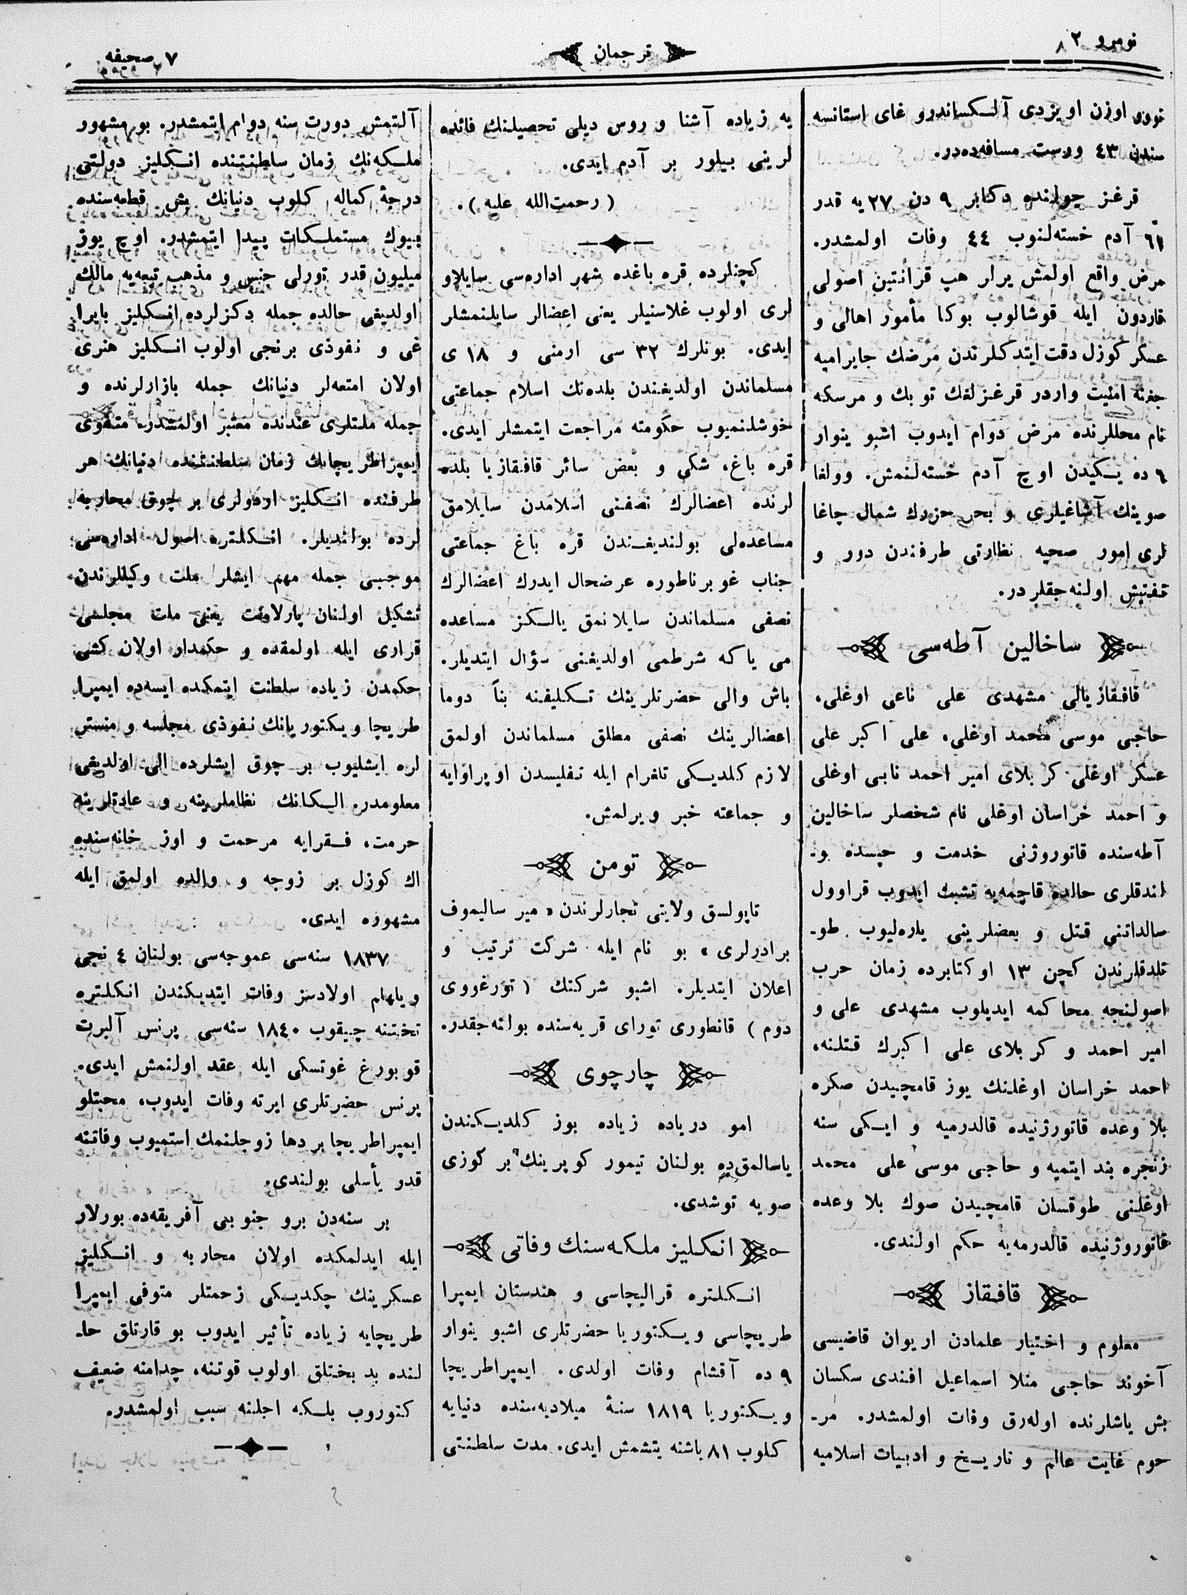 نومرو ٢
ترجمان
٧ صحیفه
نووی اوزن اویزدی آلکساندرو غای استانسه
سندن ٤٣ ورست مسافه‌ده‌در.
قرغز چولنده دکابر ٩ دن ٢٧ یه قدر
٦١ آدم خسته‌لنوب ٤٤ وفات اولمشدر.
مرض واقع اولمش یرلر هپ قرانتین اصولی
قاردون ایله قوشالوب بوکا مأمور اهالی و
عسکر کوزل دقت ایتدکلرندن مرضك جایرامیه
جغنه امنیت واردر قرغزلقك توبك و مرسکه
نام محللرنده مرض دوام ایدوب اشبو ینوار
٦ ده یکیدن اوچ آدم خسته‌لنمش. وولغا
صوینك آشاغیلری و بحر حزرك شمال چاغا
لری امور صحیه نظارتی طرفندن دور و
تفتیش اولنه‌جقلردر.
ساخالین آطه‌سی
قافقازیالی مشهدی علی ناعی اوغلی،
حاجی موسی محمد اوغلی، علی اکبر علی
عسکر اوغلی کربلای امیر احمد نابی اوغلی
و احمد خراسان اوغلی نام شخصلر ساخالین
آطه‌سنده قاتورژنی خدمت و حبسده بو‌ـ
لندقلری حالده قاچمه‌یه تشبث ایدوب قراوول
سالداتنی قتل و بعضلرینی یاره‌لیوب طو‌ـ
تلدقلرندن کچن ١٣ اوکتابرده زمان حرب
اصولنجه محاکمه ایدیلوب مشهدی علی و
امیر احمد و کربلای علی اکبرك قتلنه،
احمد خراسان اوغلنك یوز قامچیدن صکره
بلا وعده قاتورژنیده قالدرمیه و ایکی سنه
زنجره بند ایتمیه و حاجی موسی علی محمد
اوغلنی طوقسان قامچیدن صوك بلا وعده
قاتوروژنیده قالدرمه‌یه حکم اولندی.
قافقاز
معلوم و اختیار علمادن اریوان قاضیسی
آخوند حاجی منلا اسماعیل افندی سکسان
بش یاشلرنده اوله‌رق وفات اولمشدر. مر‌ـ
حوم غایت عالم و تاریخ و ادبیات اسلامیه
یه زیاده آشنا و روس دیلی تحصیلنك فائده
لرینی بیلور بر آدم ایدی.
( رحمت‌الله علیه ).
کچنلرده قره باغده شهر اداره‌سی سایلاو
لری اولوب غلاسنیلر یعنی اعضالر سایلنمشلر
ایدی. بونلرك ٣٢ سی ارمنی و ١٨ ی
مسلماندن اولدیغندن بلده‌نك اسلام جماعتی
خوشلنمیوب حکومته مراجعت ایتمشلر ایدی.
قره باغ، شکی و بعض سائر قافقازیا بلده
لرنده اعضالرك نصفنی اسلامدن سایلامق
مساعده‌لی بولندیغندن قره باغ جماعتی
جناب غوبرناطوره عرضحال ایدرك اعضالرك
نصفی مسلماندن سایلانمق یالکز مساعده
می یا که شرطمی اولدیغنی سؤال ایتدیلر.
باش والی حضرتلرینك تکلیفنه بناً دوما
اعضالرینك نصفی مطلق مسلماندن اولمق
لازم کلدیکی تلغرام ایله تفلیسدن اوپراوایه
و جماعته خبر ویرلمش.
تومن
تاپولسق ولایتی تجارلرندن « میر سالیموف
برادرلری » بو نام ایله شرکت ترتیب و
اعلان ایتدیلر. اشبو شرکتك ( تورغووی
دوم ) قانطوری تورای قریه‌سنده بولنه‌جقدر.
چارجوی
امو دریاده زیاده بوز کلدیکندن
یاسالمق‌ده بولنان تیمور کوپرینك بر کوزی
صویه توشدی.
انکلیز ملکه‌سنك وفاتی
انکلتره قرالیچاسی و هندستان ایمپرا
طریچاسی ویکتوریا حضرتلری اشبو ینوار
٩ ده آقشام وفات اولدی. ایمپراطریچا
ویکتوریا ١٨١٩ سنهٔ میلادیه‌سنده دنیایه
کلوب ٨١ باشنه یتشمش ایدی. مدت سلطنتی
آلتمش دورت سنه دوام ایتمشدر. بو مشهور
ملکه‌نك زمان سلطنتنده انکلیز دولتی
درجهٔ کماله کلوب دنیانك بش قطعه‌سنده
بیوك مستملکات پیدا ایتمشدر. اوچ یوز
میلیون قدر تورلی جنس و مذهب تبعه‌یه مالك
اولدیغی حالده جمله دکزلرده انکلیز بایرا
غی و نفوذی برنجی اولوب انکلیز هنری
اولان امتعه‌لر دنیانك جمله بازارلرنده و
جمله ملتلری عندنده معتبر اولمشدر. متفوی
ایمپراطریچانك زمان سلطنتنده دنیانك هر
طرفنده انکلیز اردولری بر چوق محاربه
لرده بولندیلر. انکلتره اصول اداره‌سی
موجبی جمله مهم ایشلر ملت وکیللرندن
تشکیل اولنان پارلامنت یعنی ملت مجلسی
قراری ایله اولمقده و حکمدار اولان کشی
حکمدن زیاده سلطنت ایتمکده ایسه‌ده ایمپرا
طریچا ویکتوریانك نفوذی مجلسه و منستر
لره ایشلیوب بر چوق ایشلرده الی اولدیغی
معلومدر. الکانك نظاملرینه و عادتلرینه
حرمت، فقرایه مرحمت و اوز خانه‌سنده
اك کوزل بر زوجه و والده اولمق ایله
مشهوره ایدی.
١٨٣٧ سنه‌سی عموجه‌سی بولنان ٤ نجی
ویلهام اولادسز وفات ایتدیکندن انکلتره
تختنه چیقوب ١٨٤٠ سنه‌سی پرنس آلبرت
قوبورغ غوتسکی ایله عقد اولنمش ایدی.
پرنس حضرتلری ایرته وفات ایدوب، محبتلو
ایمپراطریچا بر دها زوجلنمك استمیوب وفاتنه
قدو یأسلی بولندی.
بر سنه‌دن برو جنوبی آفریقه‌ده بورلار
ایله ایدلمکده اولان محاربه و انکلیز
عسکرینك چکدیکی زحمتلر متوفی ایمپرا
طریچایه زیاده تأثیر ایدوب بو قارتلق حا‌ـ
لنده بد بختلق اولوب قوتنه، جدامنه ضعیف
کتوروب بلکه اجلنه سبب اولمشدر.